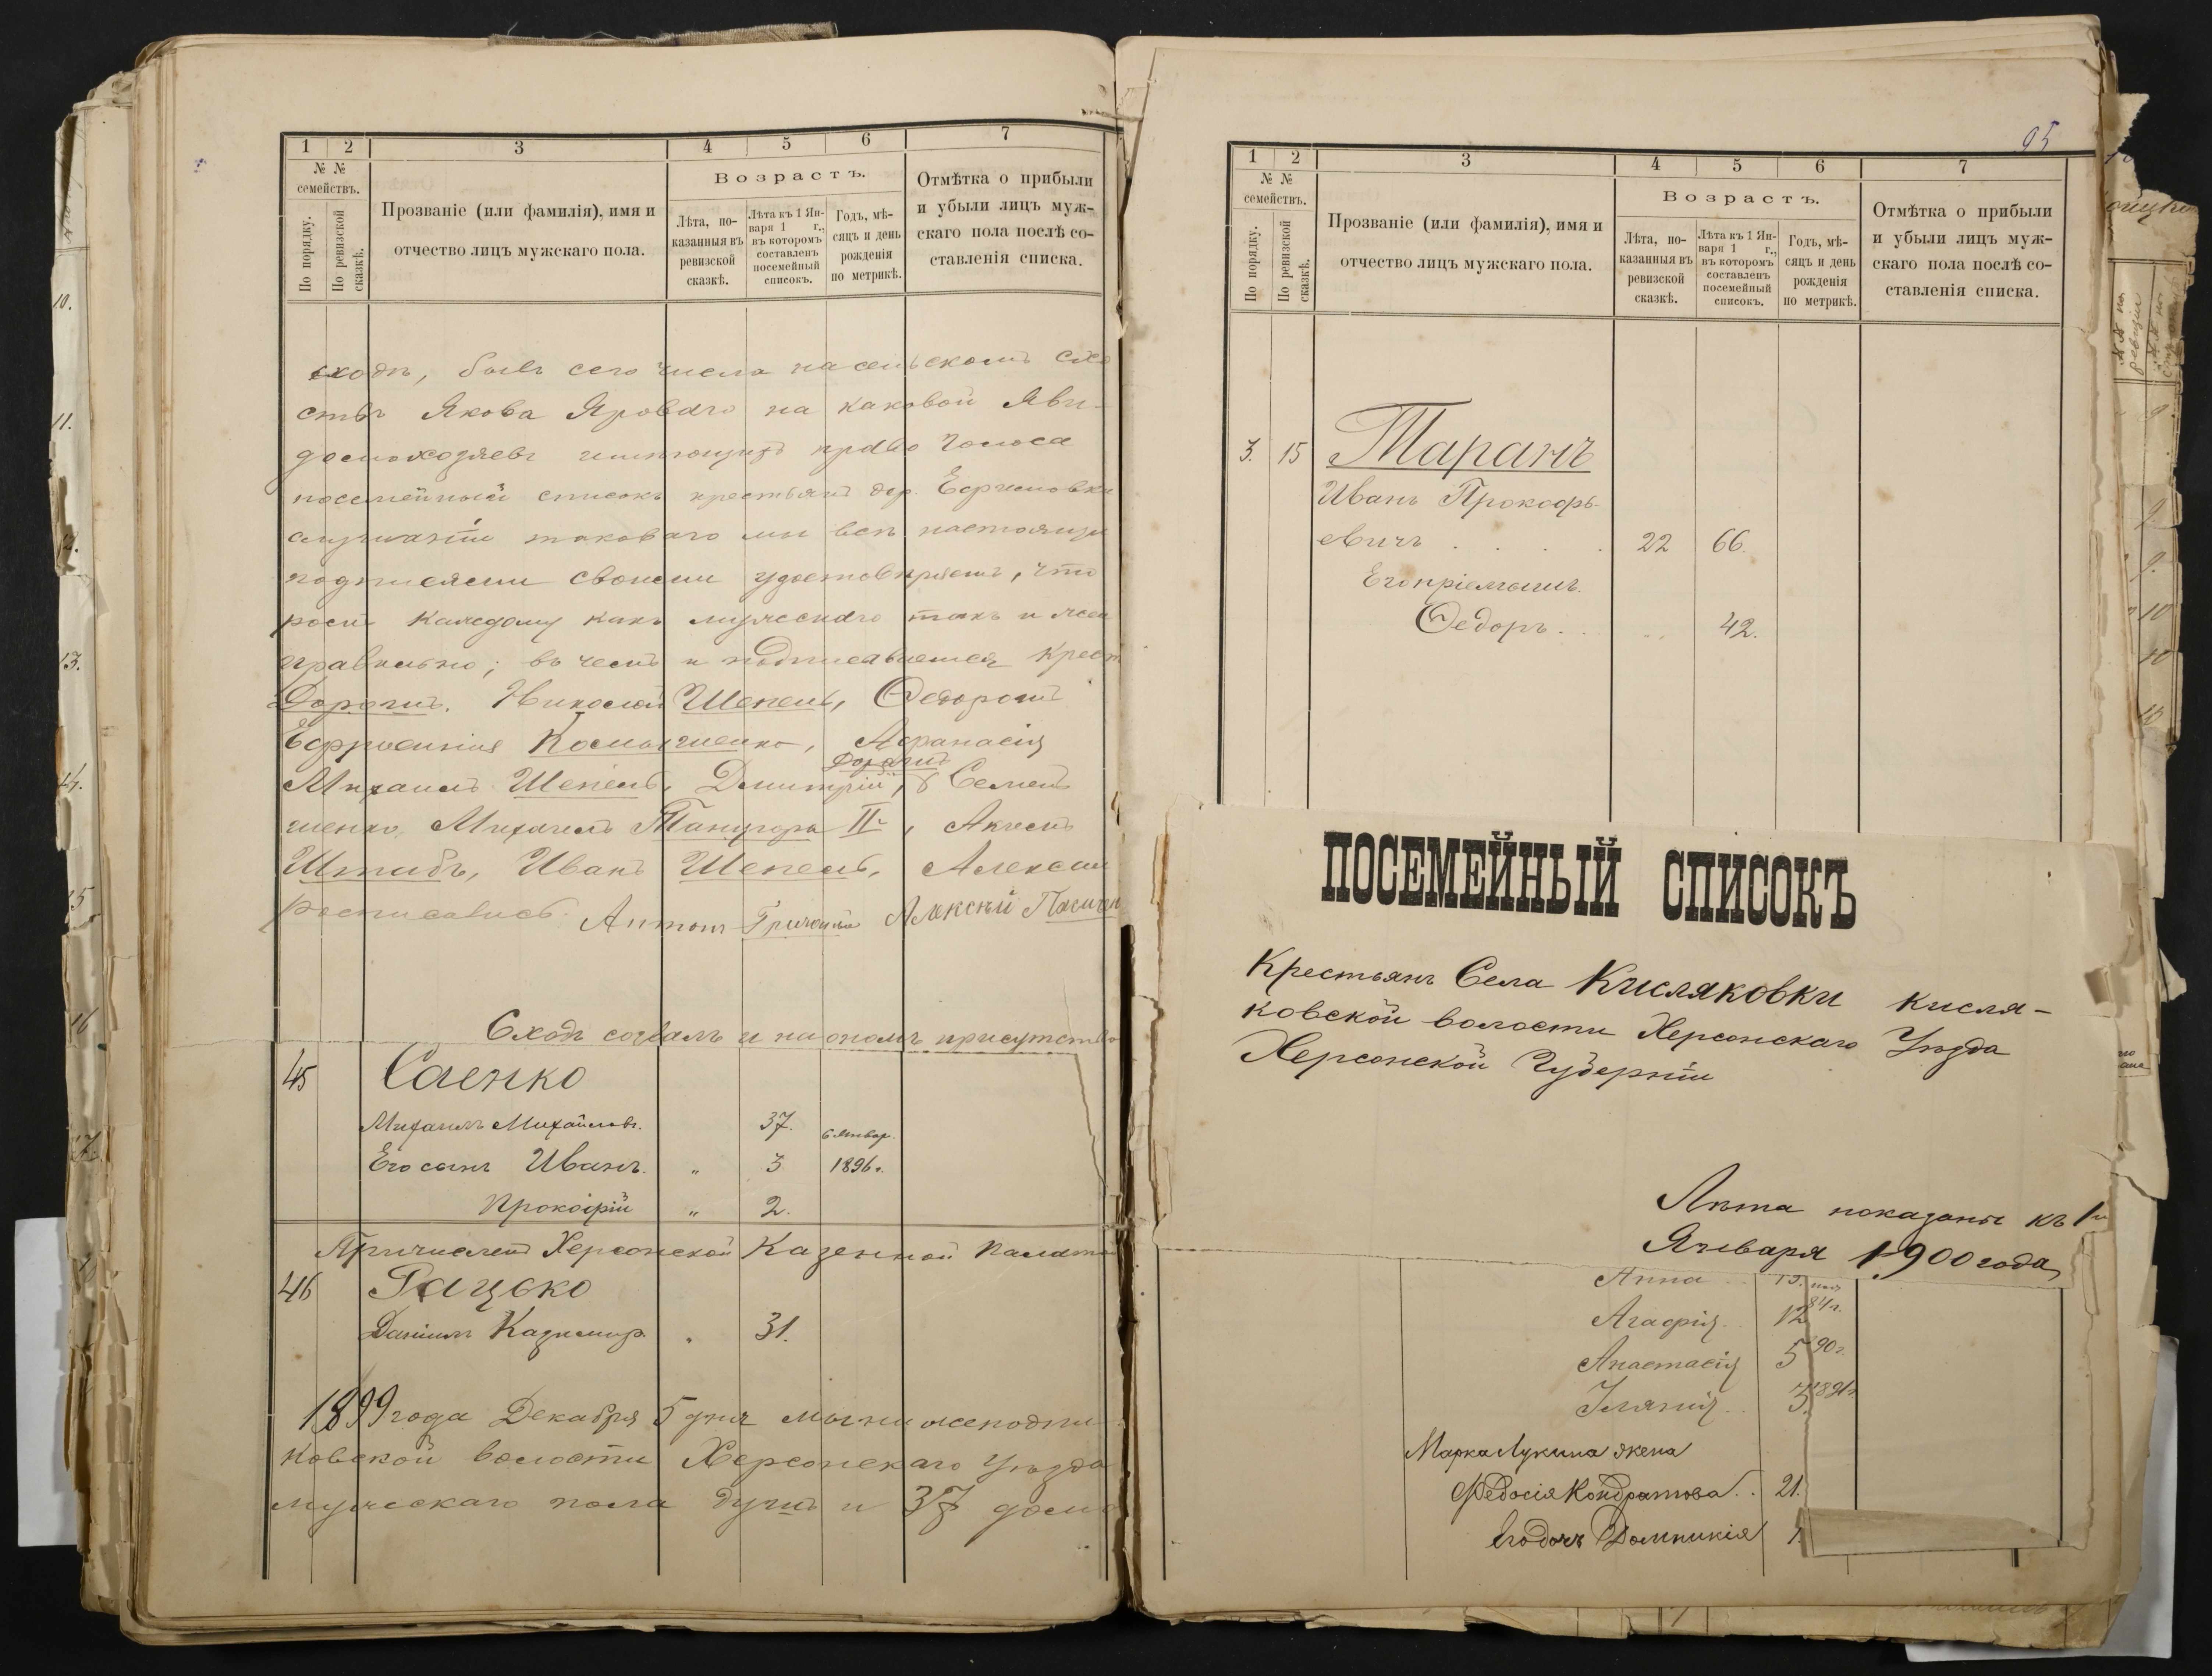 1 2 3 4 5 6 7
№ № семействъ.
По порядку.
По ревизской сказкѣ.
Прозваніе (или фамилія), имя и
отчество лицъ мужскаго пола.
Возрастъ.
Лѣта, по-
казанныя въ
ревизской
сказкѣ.
Лѣта къ 1 Ян-
варя 1 г.,
въ которомъ
составленъ
посемейный
списокъ.
Годъ, мѣ-
сяцъ и день
рожденія
по метрикѣ.
Отмѣтка о прибыли
и убыли лицъ муж-
скаго пола послѣ со-
ставленія списка.
сходъ, бывъ сего числа на сельскомъ схо
ствѣ Якова Яроваго на каковой яви-
домохозяевъ имѣющихъ право голоса
посемейный списокъ крестьянъ дер. Ефимовки
таковаго мы всѣ настоящи
подписями своими удостовѣряемъ, что
каждому какъ мужскаго такъ и жен
правильно; въ чемъ и подписавшемся крест
Николай Шепель, Федоромъ
Афанасій
Михаилъ Шепель, Дмитрій, Семенъ
шенко, Михаилъ Танцюра II-
Штабъ, Иванъ Шепель, Алексѣй
росписались. Антонъ Алексѣй
Сходъ созвалъ и на ономъ присутство
45 Саенко
Михаилъ Михайловъ. 37.
6 январ.
Его сынъ Иванъ. " 3 1896 г.
Прокофій " 2.
Причисленъ Херсонской Казенной Палатой
46 Рацько
Даніилъ Казимир. " 31.
1899 года Декабря 5 дня мы нижеподпи
ковской волости Херсонскаго уѣзда
мужескаго пола душъ и 37 домо
95
1 2 3 4 5 6 7
№ № семействъ.
По порядку.
По ревизской сказкѣ.
Прозваніе (или фамилія), имя и
отчество лицъ мужскаго пола.
Возрастъ.
Лѣта, по-
казанныя въ
ревизской
сказкѣ.
Лѣта къ 1 Ян-
варя 1 г.,
въ которомъ
составленъ
посемейный
списокъ.
Годъ, мѣ-
сяцъ и день
рожденія
по метрикѣ.
Отмѣтка о прибыли
и убыли лицъ муж-
скаго пола послѣ со-
ставленія списка.
3. 15 Таранъ
Иванъ Прокофь-
евичъ . . . . 22 66.
Его пріемышъ.
Ѳедоръ . . 42.
ПОСЕМЕЙНЫЙ СПИСОКЪ
Крестьянъ Села Кисляковки Кисля-
ковской волости Херсонскаго Уѣзда
Херсонской Губерніи
Лѣта показаны къ 1-у
Января 1900 года
Анна
Агафія 12 84 г.
Анастасія 5 90 г.
3
Марка Лукина жена
Федосія Кондратова . . 21.
Его дочь Домникія 1.